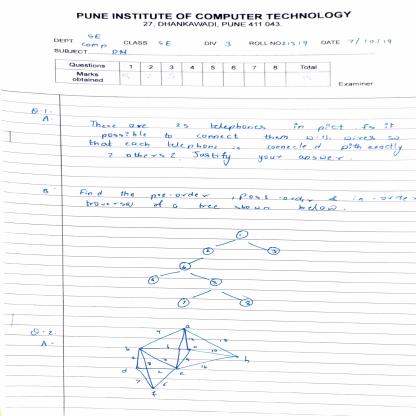 PUNE INSTITUTE OF COMPUTER TECHNOLOGY
27, DHANKAWADI, PUNE 411 043.
DEPT SE Comp CLASS SE DIV 3 ROLL NO 21319 DATE 7/10/19
SUBJECT DM
Questions 1 2 3 4 5 6 7 8 Total
Marks obtained
Examiner
Q.1.
A. There are 25 telephones in pict. Is it
possible to connect them with wires so
that each telephone is connected with exactly
7 others? Justify your answer.
B. Find the pre-order, post-order & in-order
traversal of a tree shown below.
Q.2.
A.
a
b
h
d
f